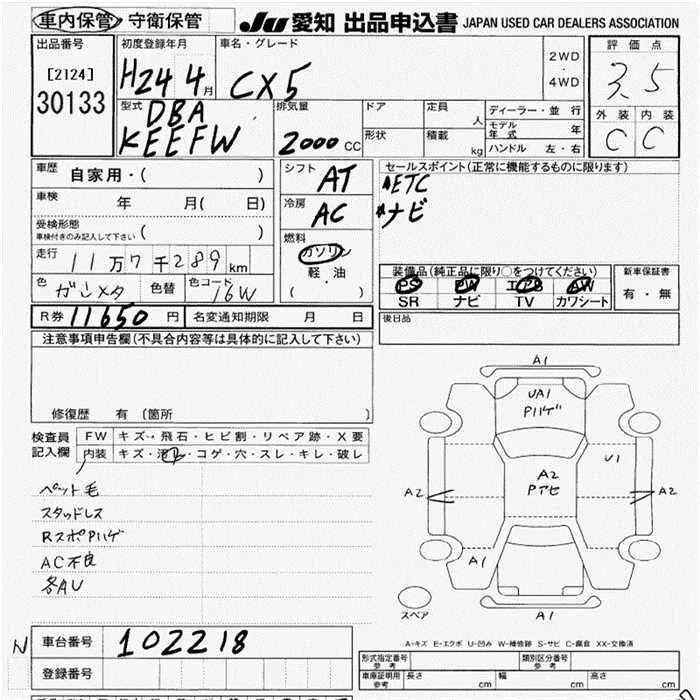 車内保管・守衛保管
JU 愛知 出品申込書 JAPAN USED CAR DEALERS ASSOCIATION
出品番号 [2124] 30133
初度登録年月 H24 4月
車名・グレード CX5
2WD・4WD
評価点 3.5
外装 内装
C C
型式 DBA
KEEFW
排気量 2000 CC
ドア
定員 人
ディーラー・並行
モデル年式 年
形状
積載 kg
ハンドル 左・右
車歴 自家用・( )
車検 年 月( 日)
受検形態
車検付きのみ記入して下さい ( )
走行 11万7千289km
色 ガンメタ 色替 色コード 16W
シフト AT
冷房 AC
燃料
ガソリン
軽・油
( ・ )
セールスポイント(正常に機能するものに限ります)
ETC
ナビ
装備品(純正品に限り○をつけてください)
PS PW エアB AW
SR ナビ TV カワシート
新車保証書
有・無
後日品
R券 11650円 名変通知期限 月 日
注意事項申告欄(不具合内容等は具体的に記入して下さい)
修復歴 有(箇所 )
検査員記入欄
FW キズ・飛石・ヒビ割・リペア跡・X要
内装 キズ・汚れ・コゲ・穴・スレ・キレ・破レ
ペット毛
スタッドレス
RスポPハゲ
AC不良
各AU
A1
UA1
Pハゲ
A2
Pアセ
U1
A2
A2
A1
A1
スペア
A-キズ E-エクボ U-凹み W-補修跡 S-サビ C-腐食 XX-交換済
N 車台番号 102218
登録番号
形式指定番号 参考
類別区分番号 参考
車庫証明用 参考 長さ cm 幅 cm 高さ cm